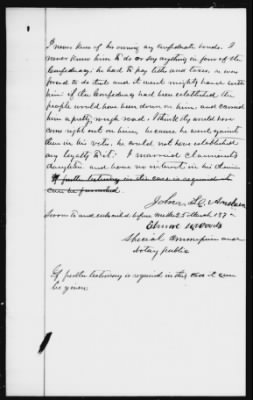 I never knew of his owning any Confederate bonds. I
never knew him to do or say anything in favor of the
Confederacy; he had to pay tithes and taxes, or were
forced to do that and it went mighty hard with
him. If the Confederacy had been established the
people would have been down on him, and caused
him a pretty rough road. I think they would have
come right out on him, because he went against
them in his vote. he could not have established
any loyalty to it. I married Claimant's
daughter and have no interest in his claim
If further testimony in this case is required it
can be furnished.
John
Sworn to and subscribed before me the 25 March 187
Woods
Special Commissioner and
Notary public
If further testimony is required in this case it can
be given